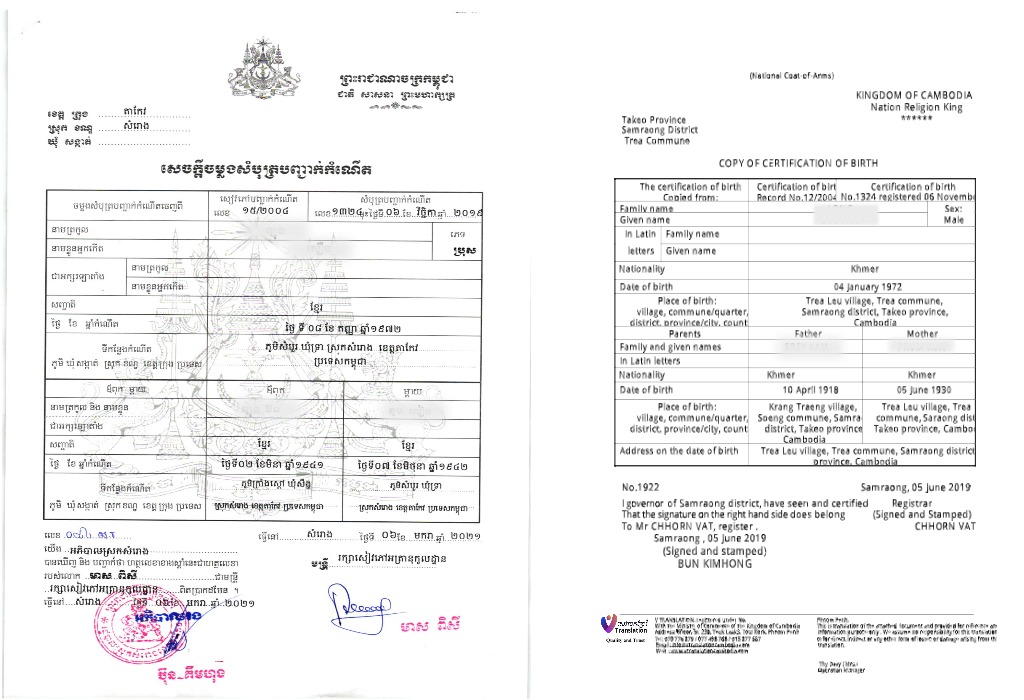 ព្រះរាជាណាចក្រកម្ពុជា
ជាតិ សាសនា ព្រះមហាក្សត្រ
ខេត្ត ក្រុង តាកែវ
ស្រុក ខណ្ឌ សំរោង
ឃុំ សង្កាត់
សេចក្តីចម្លងសំបុត្របញ្ជាក់កំណើត
ចម្លងសំបុត្របញ្ជាក់កំណើតចេញពី
សៀវភៅបញ្ជាក់កំណើត
លេខ ១៥/២០០៤
សំបុត្របញ្ជាក់កំណើត
លេខ ១៣២៤ ចុះថ្ងៃទី ០៦ ខែ វិច្ឆិកា ឆ្នាំ ២០១៩
នាមត្រកូល
នាមខ្លួនអ្នកកើត
ភេទ
ប្រុស
ជាអក្សរឡាតាំង
នាមត្រកូល
នាមខ្លួនអ្នកកើត
សញ្ជាតិ ខ្មែរ
ថ្ងៃ ខែ ឆ្នាំកំណើត ថ្ងៃ ទី ០៨ ខែ កញ្ញា ឆ្នាំ១៩៧២
ទីកន្លែងកំណើត
ភូមិ ឃុំសង្កាត់ ស្រុក ខណ្ឌ ខេត្តក្រុង ប្រទេស
ភូមិសំបួរ ឃុំទ្រា ស្រុកសំរោង ខេត្តតាកែវ
ប្រទេសកម្ពុជា
ឪពុក ម្តាយ ឪពុក ម្តាយ
នាមត្រកូល និង នាមខ្លួន
ជាអក្សរឡាតាំង
សញ្ជាតិ ខ្មែរ ខ្មែរ
ថ្ងៃ ខែ ឆ្នាំកំណើត ថ្ងៃទី០២ ខែមិនា ឆ្នាំ១៩៤១ ថ្ងៃទី០៧ ខែមិថុនា ឆ្នាំ១៩៤២
ទីកន្លែងកំណើត
ភូមិ ឃុំសង្កាត់ ស្រុក ខណ្ឌ ខេត្តក្រុង ប្រទេស
ស្រុកសំរោង ខេត្តតាកែវ ប្រទេសកម្ពុជា
ភូមិសំបួរ ឃុំទ្រា
ស្រុកសំរោង ខេត្តតាកែវ ប្រទេសកម្ពុជា
លេខ
យើង អភិបាលស្រុកសំរោង
បានឃើញ និង បញ្ជាក់ថា ហត្ថលេខាខាងស្តាំនេះជាហត្ថលេខា
របស់លោក មាស ពិសី ជាមន្ត្រី
រក្សាសៀវភៅអត្រានុកូលដ្ឋាន ពិតប្រាកដមែន ។
ធ្វើនៅ សំរោង ថ្ងៃទី ០៦ ខែ មករា ឆ្នាំ ២០២១
អភិបាលរង
ប៊ុន គឹមហុង
ធ្វើនៅ សំរោង ថ្ងៃទី ០៦ ខែ មករា ឆ្នាំ ២០២១
មន្ត្រី រក្សាសៀវភៅអត្រានុកូលដ្ឋាន
មាស ពិសី
(National Coat-of-Arms)
KINGDOM OF CAMBODIA
Nation Religion King
******
Takeo Province
Samraong District
Trea Commune
COPY OF CERTIFICATION OF BIRTH
The certification of birth
Copied from:
Certification of birt
Record No.12/2004
Certification of birth
No.1324 registered 06 Novembe
Family name
Given name
Sex:
Male
In Latin
letters
Family name
Given name
Nationality Khmer
Date of birth 04 January 1972
Place of birth:
village, commune/quarter,
district, province/city, count
Trea Leu village, Trea commune,
Samraong district, Takeo province,
Cambodia
Parents Father Mother
Family and given names
In Latin letters
Nationality Khmer Khmer
Date of birth 10 April 1918 05 June 1930
Place of birth:
village, commune/quarter,
district, province/city, count
Krang Traeng village,
Soeng commune, Samra
district, Takeo province
Cambodia
Trea Leu village, Trea
commune, Saraong dist
Takeo province, Cambo
Address on the date of birth Trea Leu village, Trea commune, Samraong district
province, Cambodia
No.1922
I governor of Samraong district, have seen and certified
That the signature on the right hand side does belong
To Mr CHHORN VAT, register .
Samraong , 05 June 2019
(Signed and stamped)
BUN KIMHONG
Samraong, 05 June 2019
Registrar
(Signed and Stamped)
CHHORN VAT
Translation
Quality and Trust